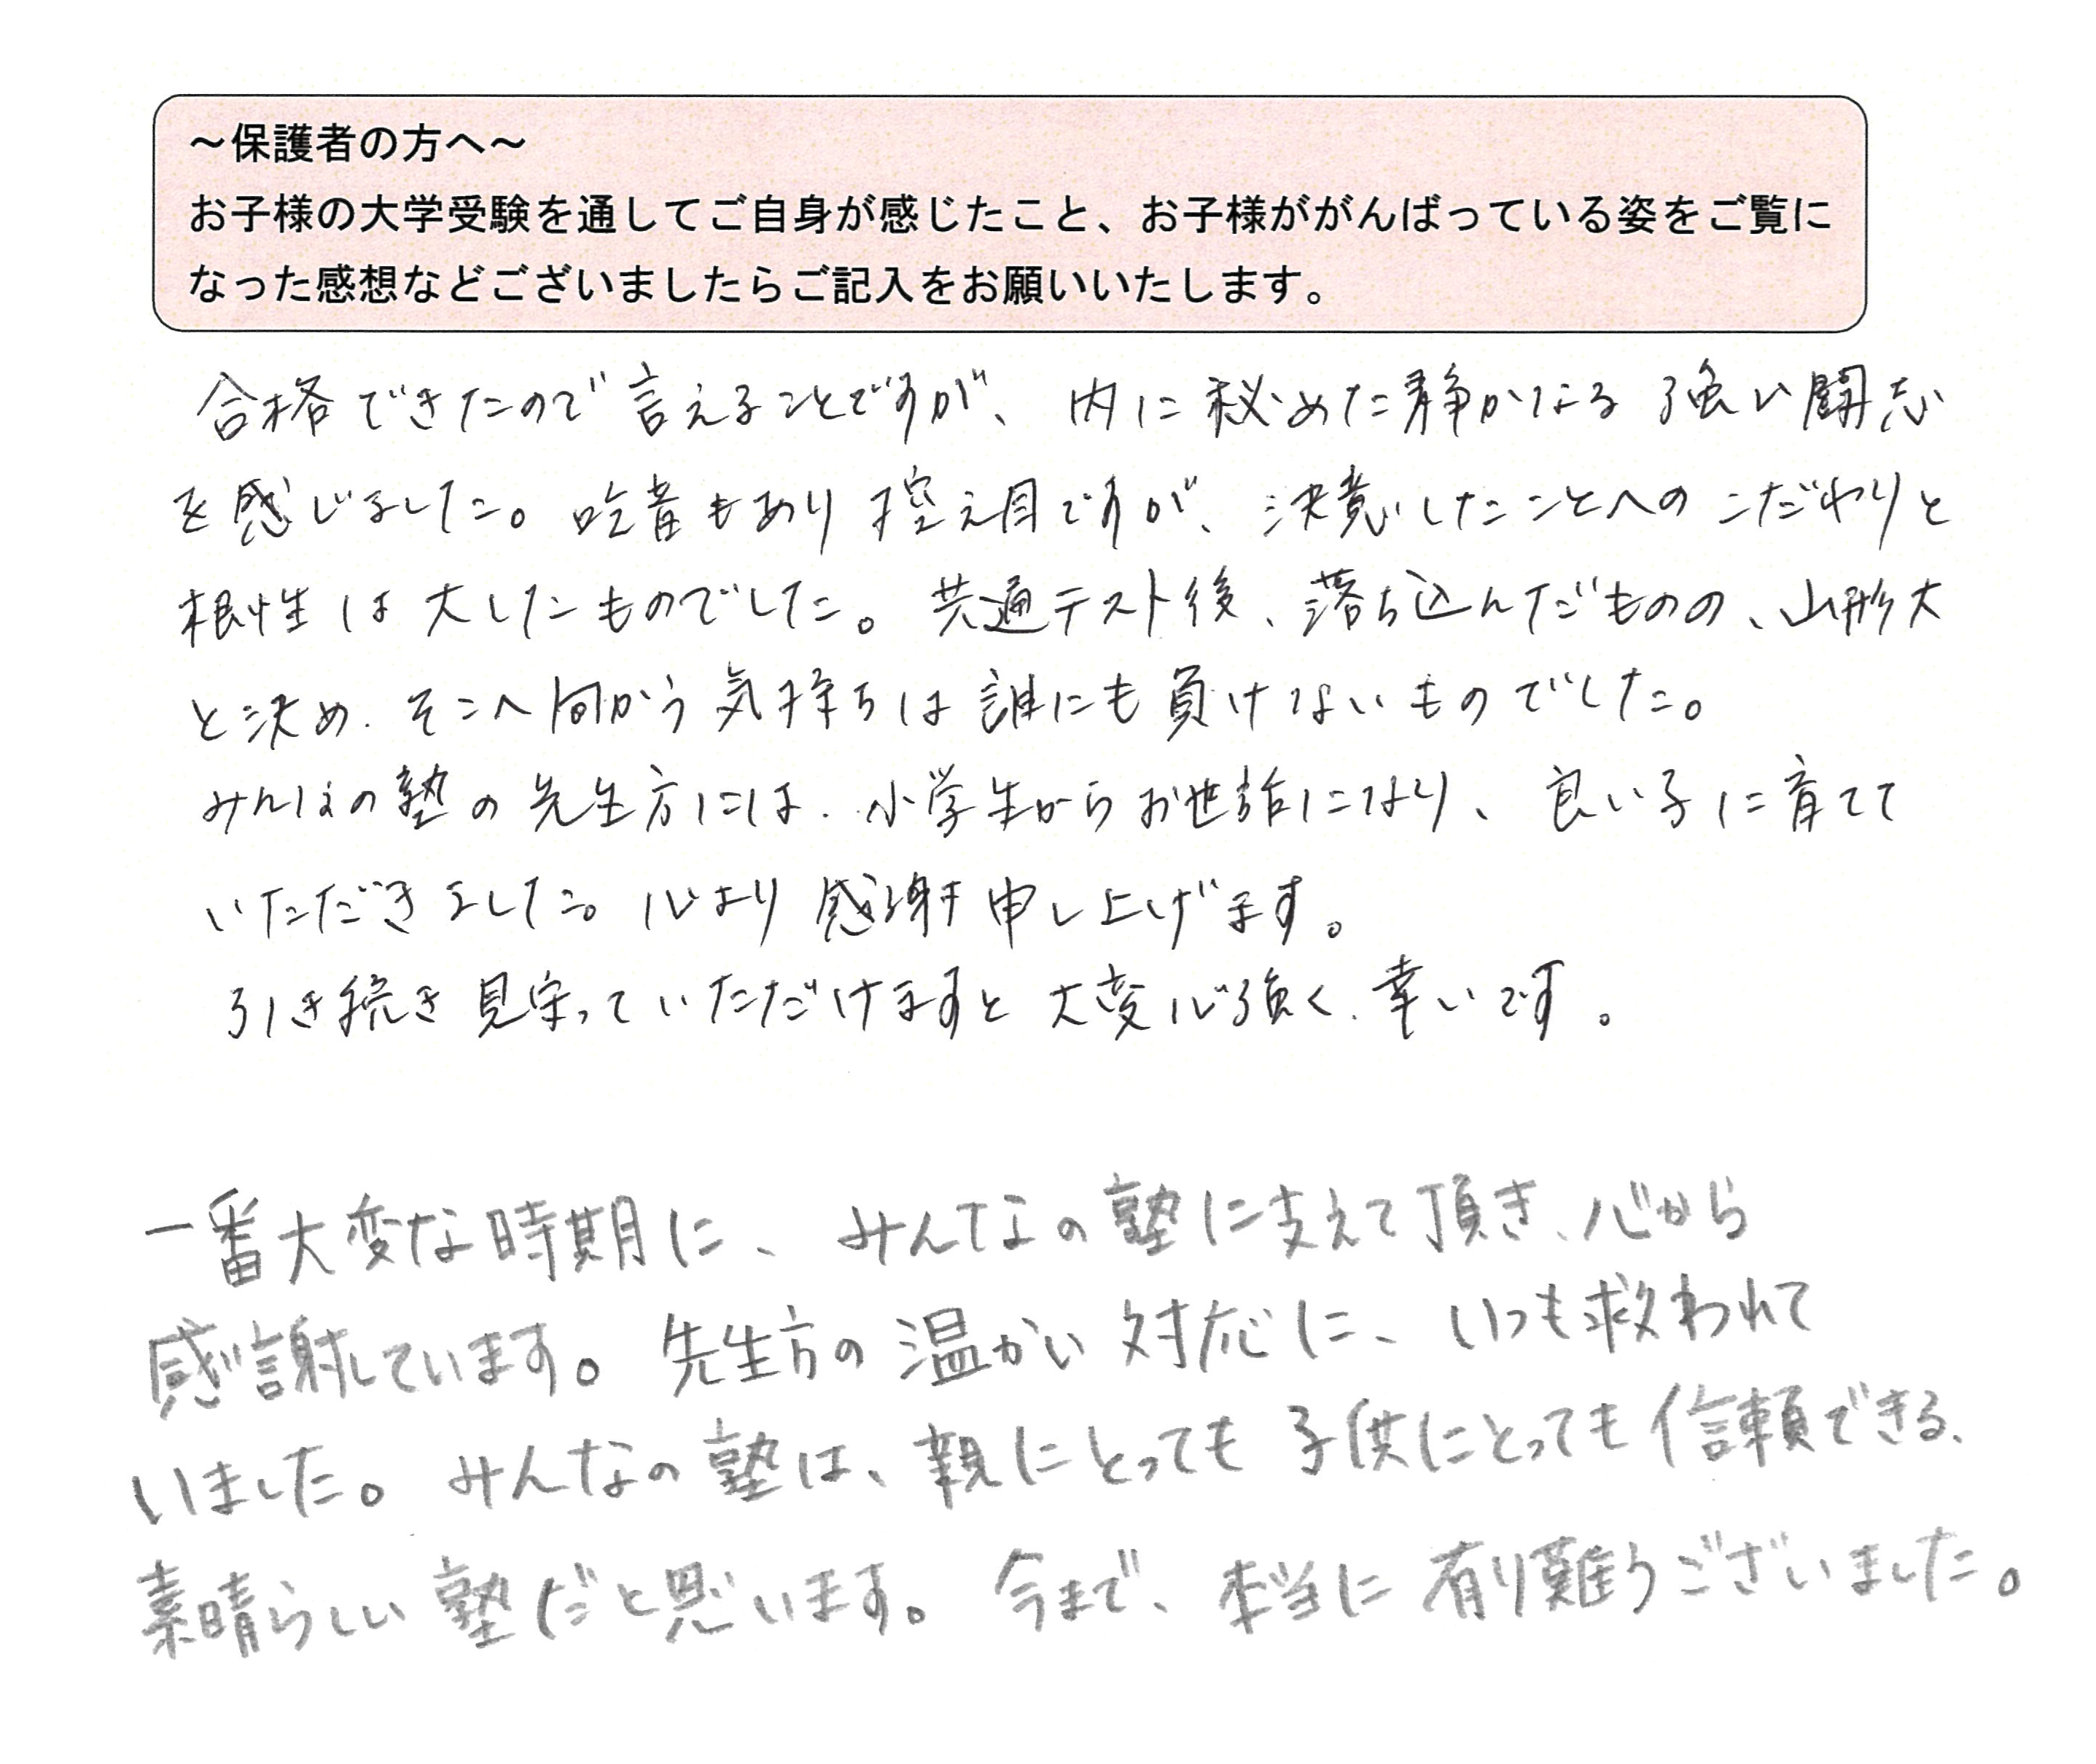 ～保護者の方へ～
お子様の大学受験を通してご自身が感じたこと、お子様ががんばっている姿をご覧に
なった感想などございましたらご記入をお願いいたします。
合格できたので言えることですが、内に秘めた静かなる強い闘志
を感じました。吃音もあり控え目ですが、決意したことへのこだわりと
根性は大したものでした。共通テスト後、落ち込んだものの、山形大
と決め、そこへ向かう気持ちは誰にも負けないものでした。
みんなの塾の先生方には、小学生からお世話になり、良い子に育てて
いただきました。心より感謝申し上げます。
引き続き見守っていただけますと大変心強く、幸いです。
一番大変な時期に、みんなの塾に支えて頂き、心から
感謝しています。先生方の温かい対応に、いつも救われて
いました。みんなの塾は、親にとっても子供にとっても信頼できる、
素晴らしい塾だと思います。今まで、本当に有り難うございました。